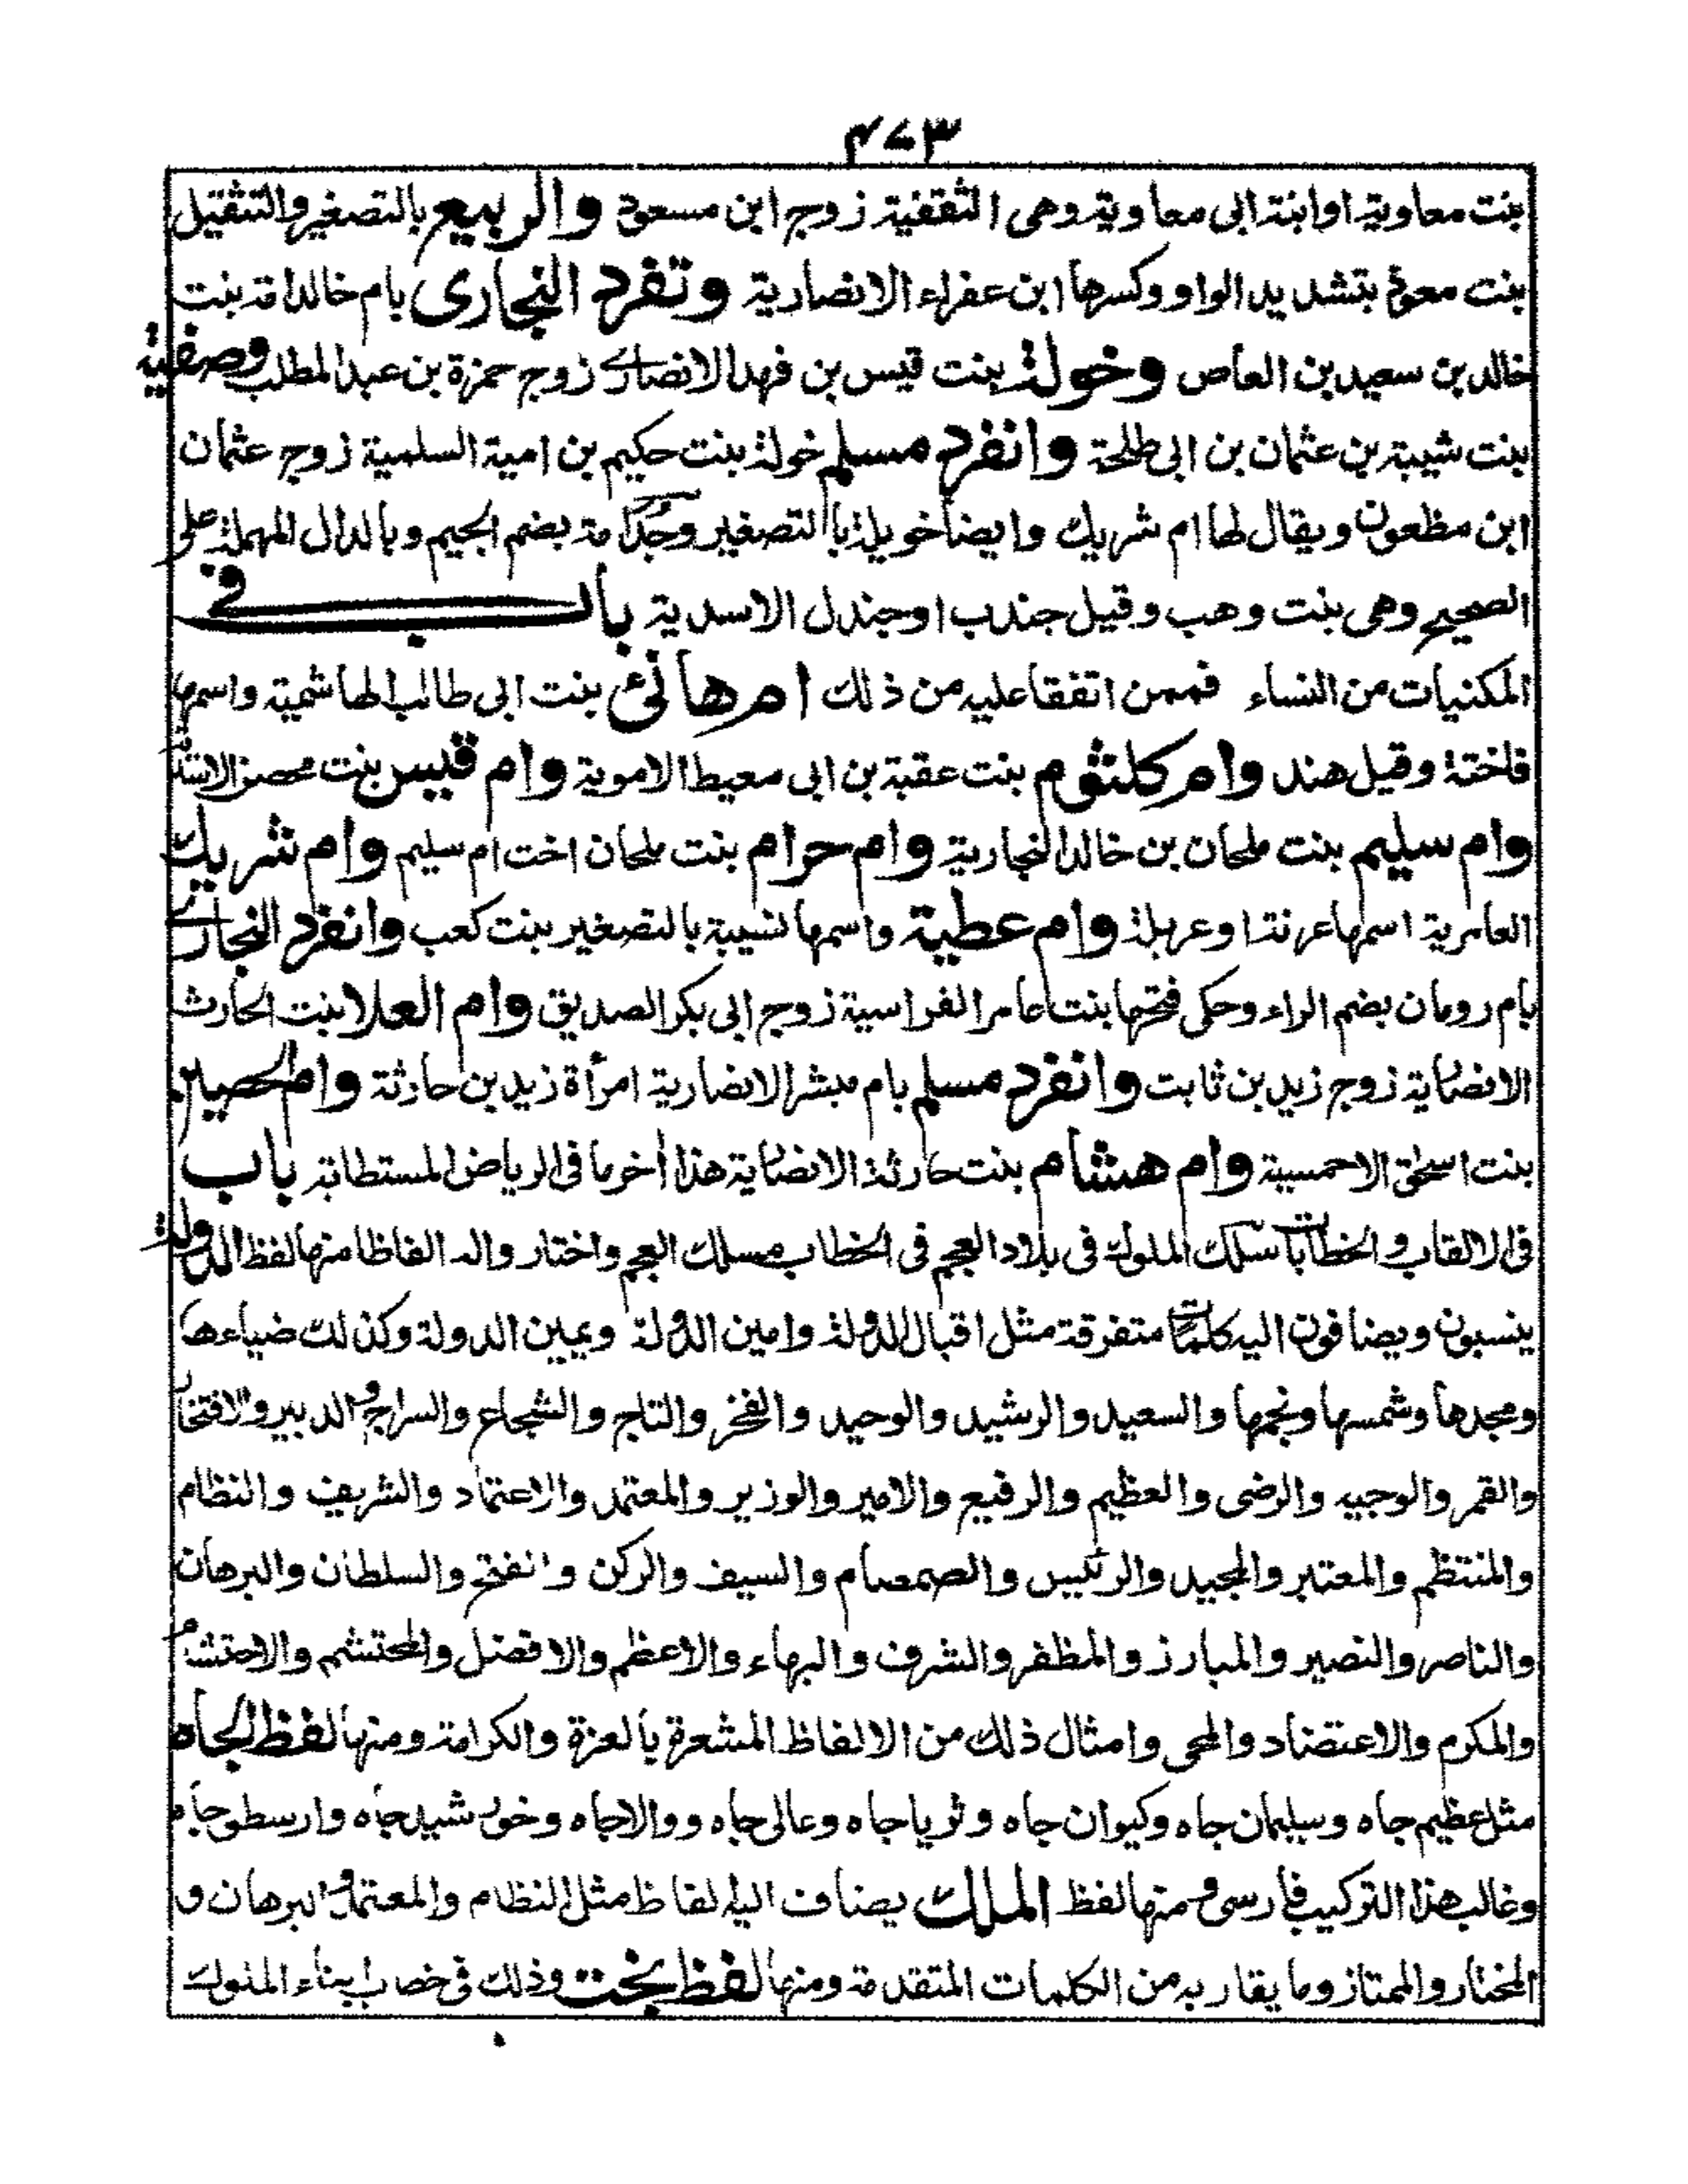 ٤٧٣
بنت معاوية او ابنة ابى معاوية وهى الثقفية زوج ابن مسعود والربيع بالتصغير والتثقيل
بنت معوذ بتشديد الواو وكسرها ابن عفراء الانصارية وتفرد البخارى بام خالد امة بنت
خالد بن سعيد بن العاص وخولة بنت قيس بن فهد الانصارى زوج حمزة بن عبد المطلب وصفية
بنت شيبة بن عثمان بن ابى طلحة وانفرد مسلم خولة بنت حكيم بن امية السلمية زوج عثمان
ابن مظعون ويقال لها ام شريك وايضا خويلة بالتصغير وجدامة بضم الجيم وبالدال المهملة على
الصحيح وهى بنت وهب وقيل جندب او جندل الاسدية باب فى
المكنيات من النساء فممن اتفقا عليه من ذلك ام هانئ بنت ابى طالب الهاشمية واسمها
فاختة وقيل هند وام كلثوم بنت عقبة بن ابى معيط الاموية وام قيس بنت محصن
وام سليم بنت ملحان بن خالد النجارية وام حرام بنت ملحان اخت ام سليم وام شريك
العامرية اسمها او وام عطية واسمها نسيبة بالتصغير بنت كعب وانفرد البخارى
بام رومان بضم الراء وحكى فتحها بنت عامر الفراسية زوج ابى بكر الصديق وام العلا بنت الحارث
الانصارية زوج زيد بن ثابت وانفرد مسلم بام مبشر الانصارية امرأة زيد بن حارثة وام الحصين
بنت اسحق الاحمسية وام هشام بنت حارثة الانصارية هذا أخر ما فى الرياض المستطابة باب
فى الالقاب والخطابات سلك الملوك فى بلاد العجم فى الخطاب مسلك العجم واختاروا له الفاظا منها لفظ الدولة
ينسبون ويضافون اليه كلمات متفرقة مثل اقبال الدولة وامين الدولة ويمين الدولة وكذلك ضياءها
ومجدها وشمسها ونجمها والسعيد والرشيد والوحيد والفخر والتاج والشجاع والسراج والدبير والافتخار
والقمر والوجيه والرضى والعظيم والرفيع والامير والوزير والمعتمد والاعتماد والشريف والنظام
والمنتظم والمعتبر والمجيد والرئيس والصمصام والسيف والركن والسلطان والبرهان
والناصر والنصير والمبارز والمظفر والشرف والبهاء والاعظم والافضل والمحتشم والاحتشام
والمكرم والاعتضاد والمحى وامثال ذلك من الالفاظ المشعرة بالعزة والكرامة ومنها لفظ الجاه
مثل عظيم جاه وسليمان جاه وكيوان جاه وثريا جاه وعالى جاه ووالا جاه وخورشيد جاه وارسطو جاه
وغالب هذا التركيب فارسى ومنها لفظ الملك يضاف اليه لفاظ مثل النظام والمعتمد والبرهان و
المختار والممتاز وما يقاربه من الكلمات المتقدمة ومنها لفظ بخت وذلك فى خصاب ابناء الملوك